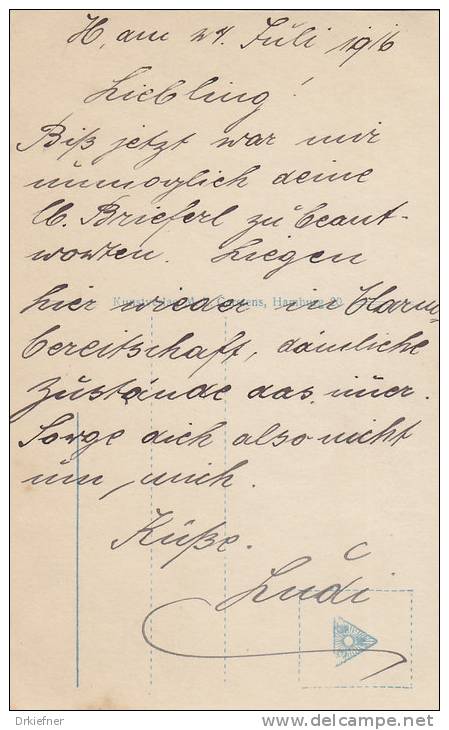 H, am 24. Juli 1916
Liebling!
Biß jetzt war mir
unmoglich deine
lb. Brieferl zu beant-
worten. Liegen
hier wieder in Alarm-
Kunstverlag M. Carstens, Hamburg 20
bereitschaft, dämliche
Zustände das nur.
Sorge dich also nicht
um mich.
Küße.
Ludi
© Drkiefner
delcampe.net